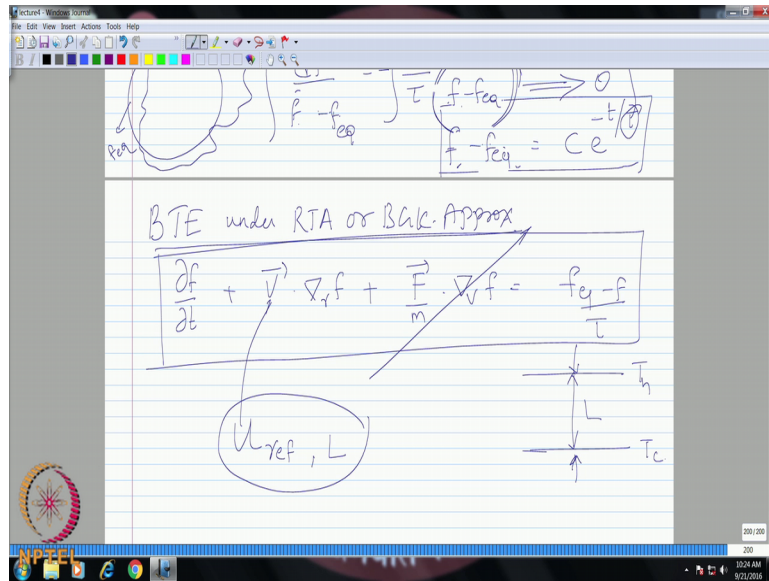 lecture4 - Windows Journal
File Edit View Insert Actions Tools Help
f - feq ⟹ 0
f - feq = C e^{-t/τ}
feq
BTE under RTA or BGK-Approx
∂f/∂t + V⃗ · ∇_r f + F⃗/m · ∇_v f = (f_eq - f)/τ
T_h
L
U_ref, L
T_c
NPTEL
200/200
200
10:24 AM
9/21/2016